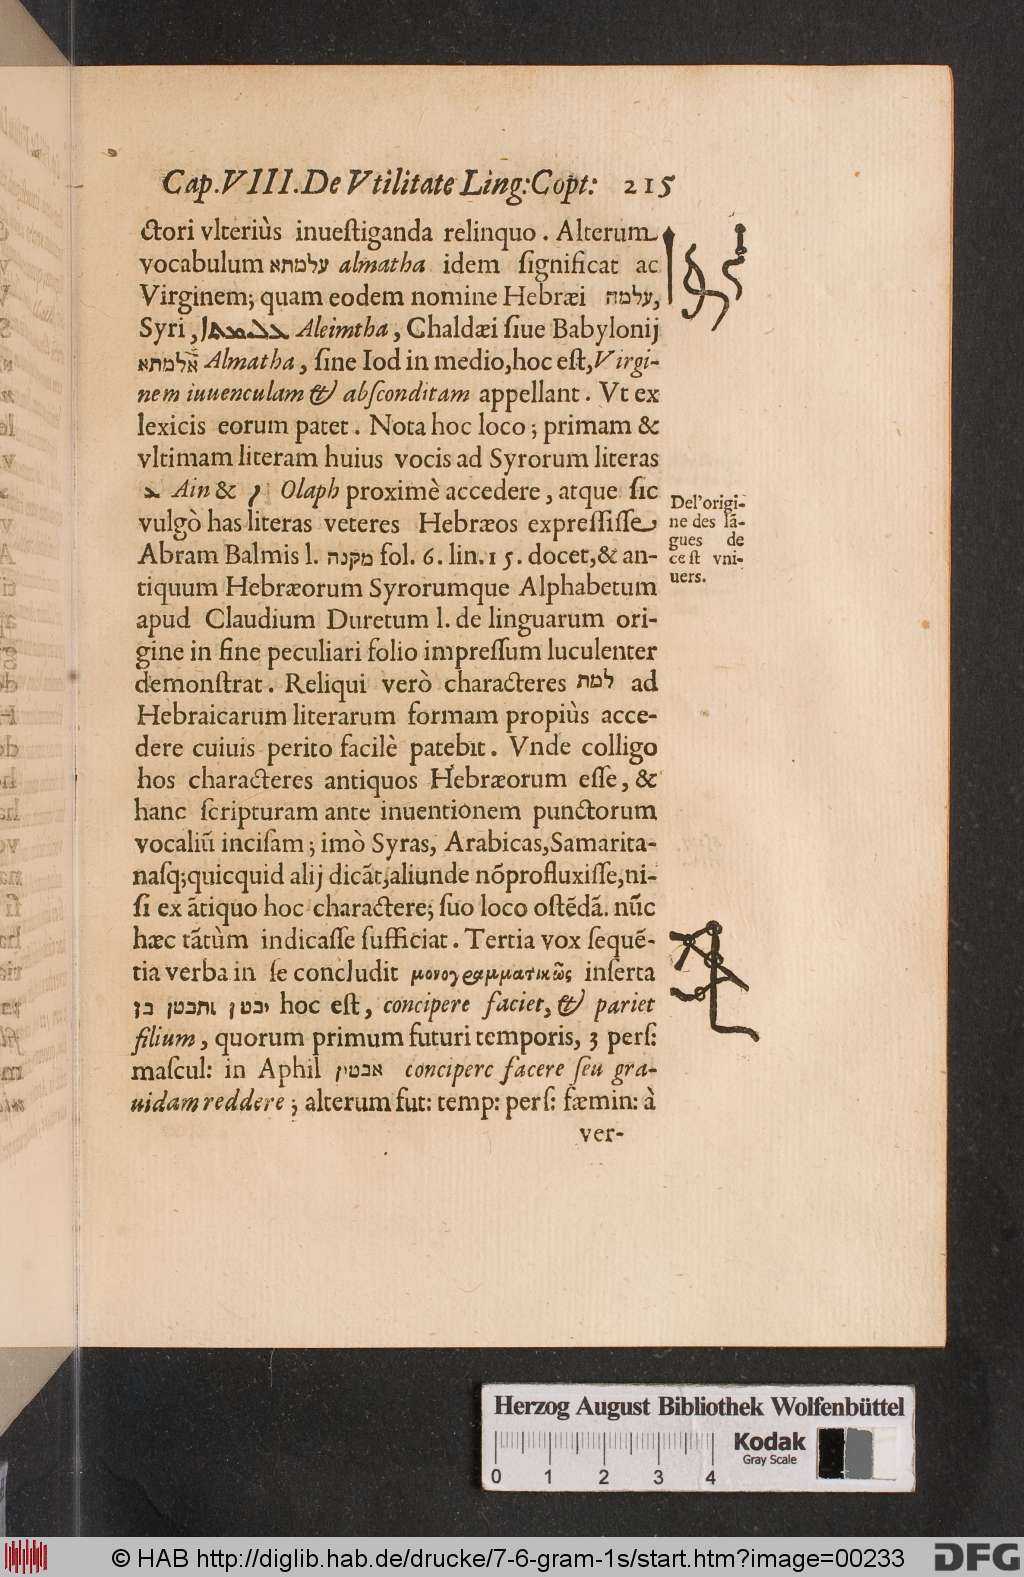 Cap.VIII.De Vtilitate Ling:Copt: 215
ctori vlteriùs inueſtiganda relinquo. Alterum
vocabulum עלמתא almatha idem ſignificat ac
Virginem; quam eodem nomine Hebræi עלמה,
Syri, Aleimtha, Chaldæi ſiue Babylonij
אלמתא Almatha, ſine Iod in medio, hoc eſt, Virgi-
nem iuuenculam & abſconditam appellant. Vt ex
lexicis eorum patet. Nota hoc loco; primam &
vltimam literam huius vocis ad Syrorum literas
Ain & Olaph proximè accedere, atque ſic
vulgò has literas veteres Hebræos expreſſiſſe
Abram Balmis l. מקנה fol. 6. lin. 15. docet, & an-
tiquum Hebræorum Syrorumque Alphabetum
apud Claudium Duretum l. de linguarum ori-
gine in fine peculiari folio impreſſum luculenter
demonſtrat. Reliqui verò characteres למת ad
Hebraicarum literarum formam propiùs acce-
dere cuiuis perito facilè patebit. Vnde colligo
hos characteres antiquos Hebræorum eſſe, &
hanc ſcripturam ante inuentionem punctorum
vocaliū inciſam; imò Syras, Arabicas, Samarita-
naſq; quicquid alij dicāt, aliunde nō profluxiſſe, ni-
ſi ex ātiquo hoc charactere; ſuo loco oſtēdā. nūc
hæc tātùm indicaſſe ſufficiat. Tertia vox ſequē-
tia verba in ſe concludit μονογραμματικῶς inſerta
יבטן ותבטן בן hoc eſt, concipere faciet, & pariet
filium, quorum primum futuri temporis, 3 perſ:
maſcul: in Aphil אבטין concipere facere ſeu gra-
uidam reddere; alterum fut: temp: perſ: fæmin: à
ver-
Del'origi-
ne des lā-
gues de
ceſt vni-
uers.
Herzog August Bibliothek Wolfenbüttel
Kodak
Gray Scale
0 1 2 3 4
© HAB http://diglib.hab.de/drucke/7-6-gram-1s/start.htm?image=00233
DFG